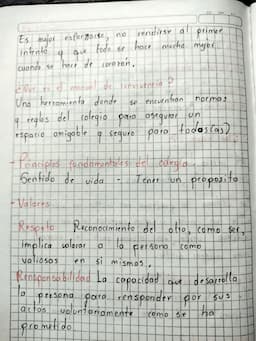 Es mejor esforzarse, no rendirse al primer
intento y que todo se hace mucho mejor
cuando se hace de corazón.
¿Qué es el manual de convivencia?
Una herramienta donde se encuentran normas
y reglas del colegio para asegurar un
espacio amigable y seguro para todos(as)
- Principios fundamentales del colegio
Sentido de vida - Tener un proposito
- Valores
Respeto Reconocimiento del otro, como ser,
implica valorar a la persona como
valiosas en si mismas.
Rensponsabilidad La capacidad que desarrolla
la persona para rensponder por sus
actos voluntariamente como se ha
prometido.